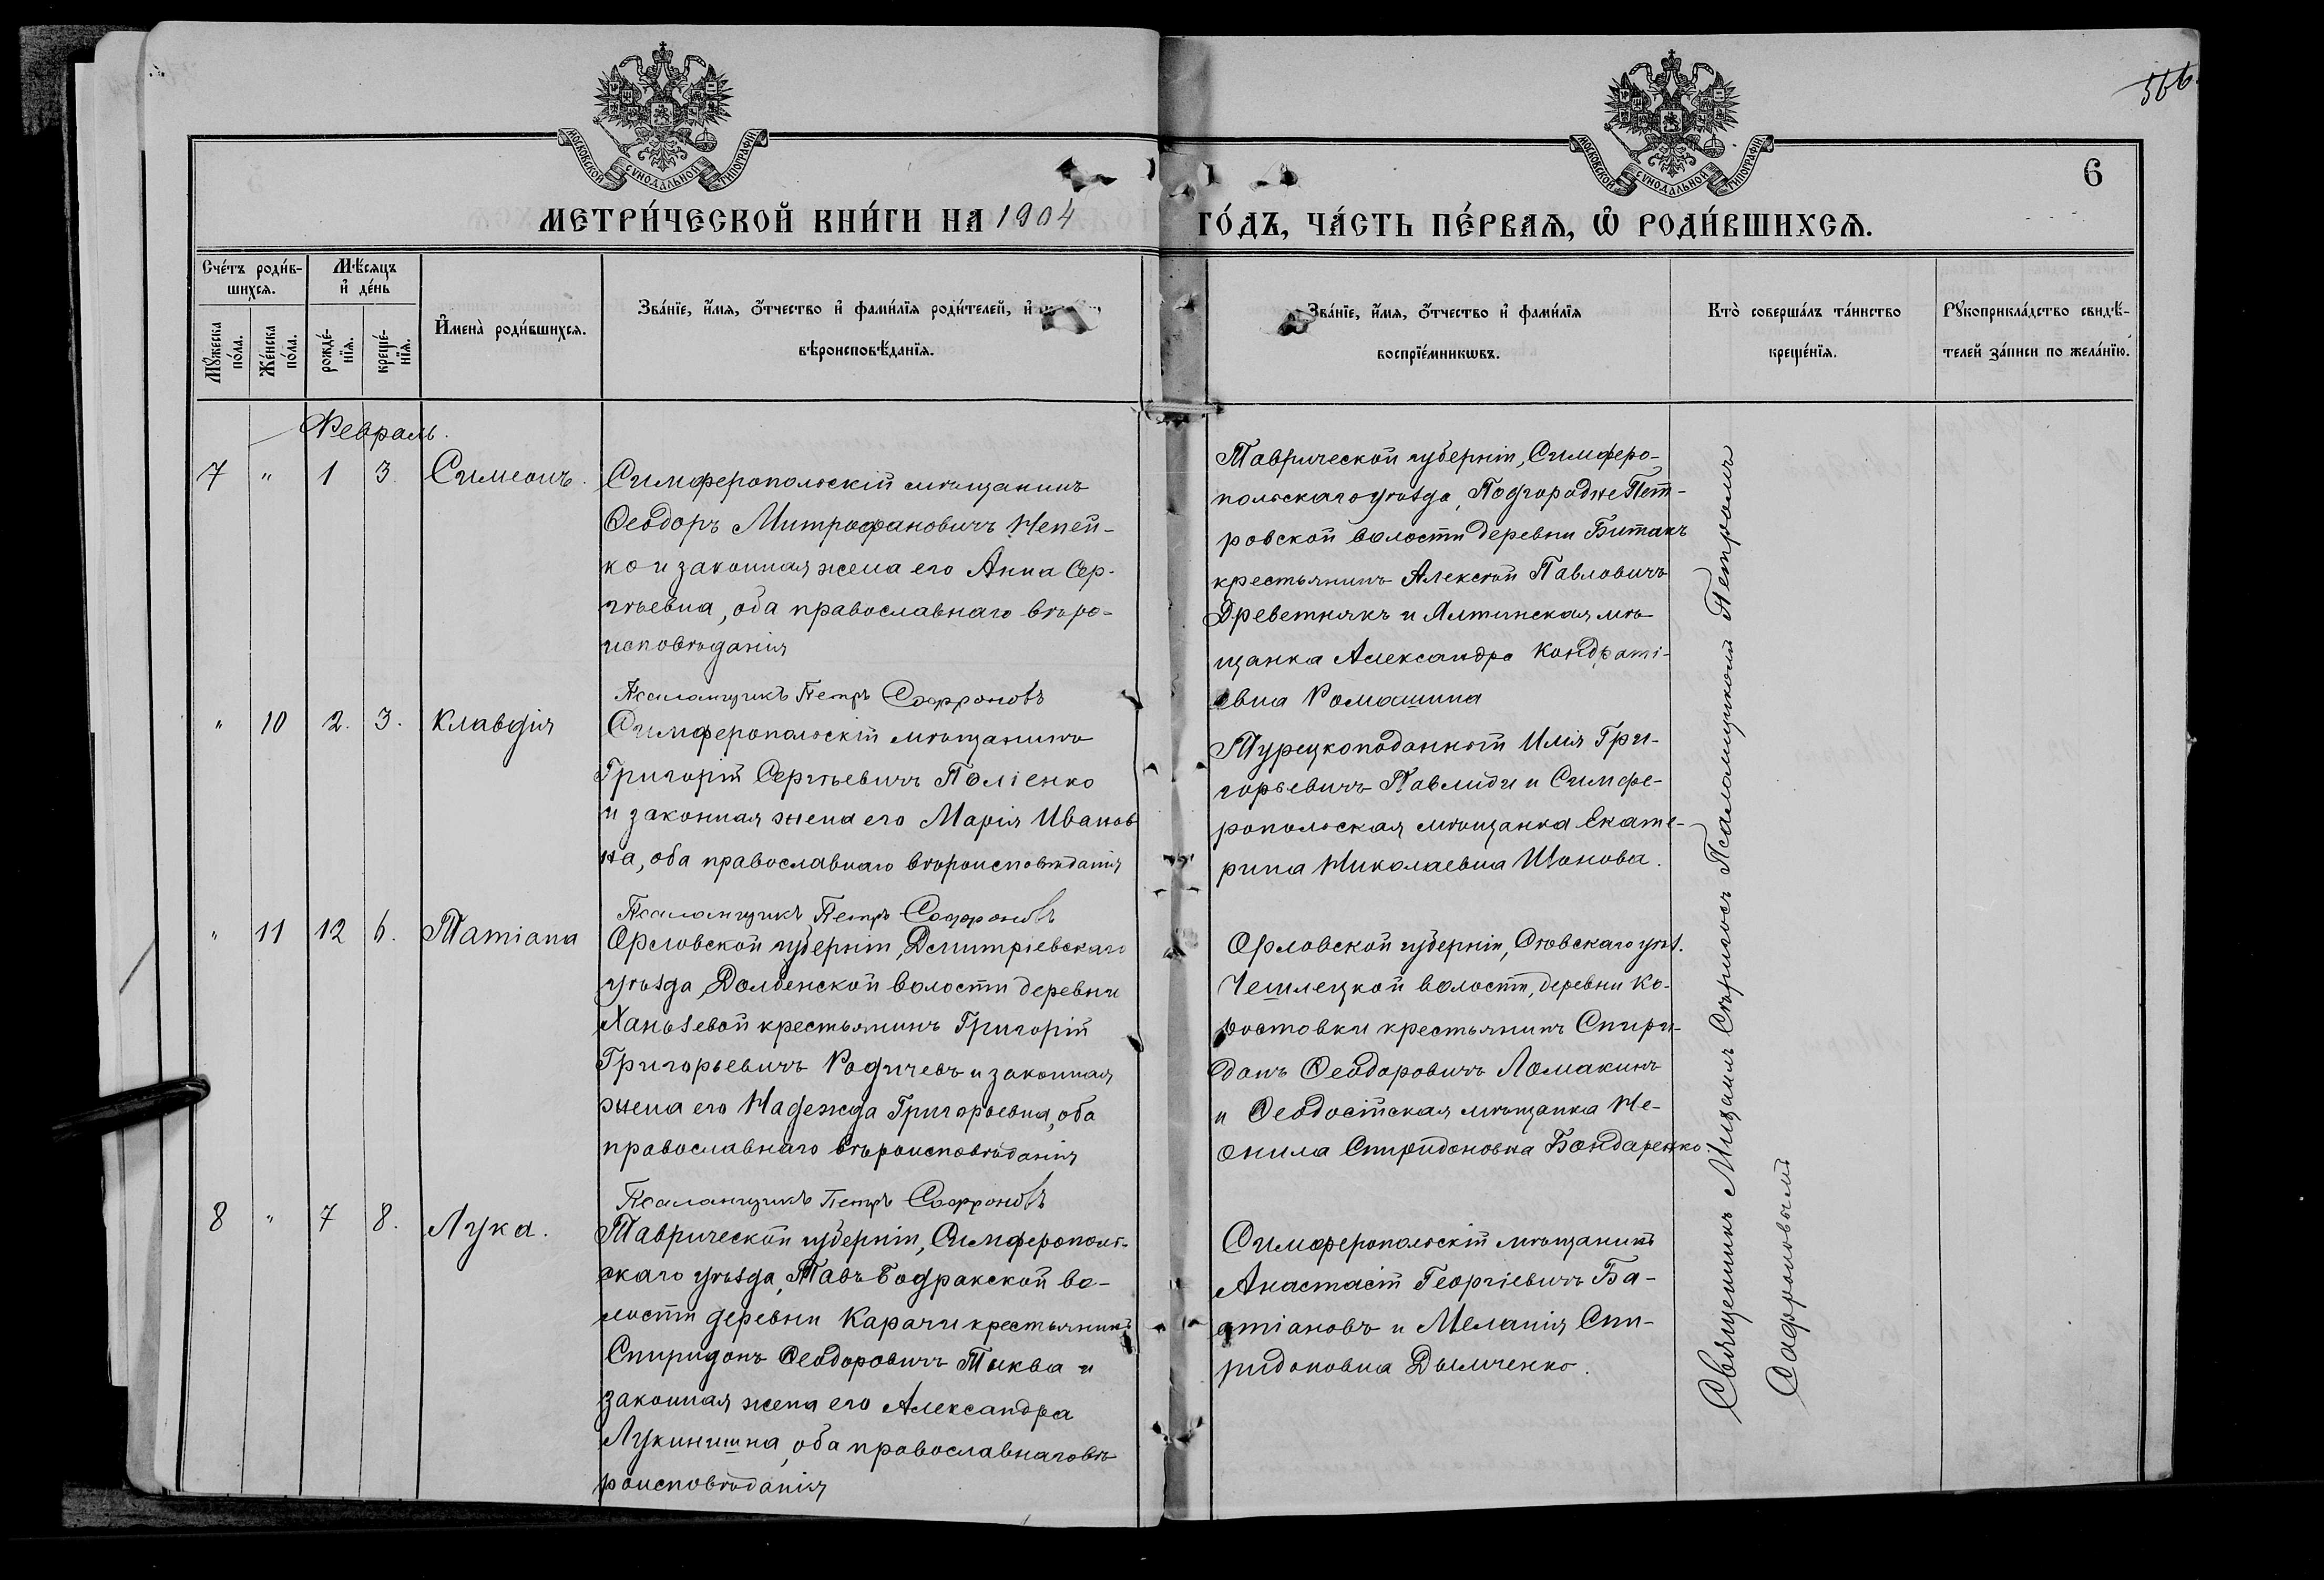 566
6
МОСКОВСКОЙ СѴНОДАЛЬНОЙ ТИПОГРАФІИ
МОСКОВСКОЙ СѴНОДАЛЬНОЙ ТИПОГРАФІИ
МЕТРИ́ЧЕСКОЙ КНИ́ГИ НА 1904 ГО́ДЪ, ЧА́СТЬ ПЕ́РВАѦ, Ѡ҆ РОДИ́ВШИХСѦ.
Сче́тъ роди́в-
шихсѧ.
Мꙋ́жеска по́ла.
Же́нска по́ла.
Мѣ́сѧцъ
и҆ де́нь
рожде́-
нїѧ.
креще́-
нїѧ.
И҆мена̀ роди́вшихсѧ.
Зва́нїе, и҆́мѧ, ѻ҆́тчество и҆ фами́лїѧ роди́телей, и҆
вѣроисповѣ́данїѧ.
Зва́нїе, и҆́мѧ, ѻ҆́тчество и҆ фами́лїѧ
воспрїе́мникѡвъ.
Кто̀ соверша́лъ та́инство
креще́нїѧ.
Рꙋкоприкла́дство свидѣ́-
телей за́писи по жела́нїю.
Февраль.
7 " 1 3. Симеонъ.
Симферопольскій мѣщанинъ
Ѳеодоръ Митрофановичъ Непей-
ко и законная жена его Анна Сер-
гѣевна, оба православнаго вѣро-
исповѣданія
Псаломщикъ Петръ Софроновъ
Таврической губерніи, Симферо-
польскаго уѣзда, Подгородне Пет-
ровской волости деревни Битакъ
крестьянинъ Алексѣй Павловичъ
Древетнякъ и Ялтинская мѣ-
щанка Александра Кондраті-
евна Ромашина
" 10 2. 3. Клавдія
Симферопольскій мѣщанинъ
Григорій Сергѣевичъ Поліенко
и законная жена его Марія Иванов
на, оба православнаго вѣроисповѣданія
Псаломщикъ Петръ Софроновъ
Турецкоподанный Илія Гри-
горьевичъ Павлиди и Симфе-
ропольская мѣщанка Екате-
рина Николаевна Шонова.
" 11 12 6. Татіана
Орловской губерніи, Дмитріевскаго
уѣзда, Долбенской волости деревни
крестьянинъ Григорій
Григорьевичъ Родичевъ и законная
жена его Надежда Григорьевна, оба
православнаго вѣроисповѣданія
Псаломщикъ Петръ Софроновъ
Орловской губерніи, Сѣвскаго уѣз.
волости, деревни Ко-
ростовки крестьянинъ Спири-
донъ Ѳеодоровичъ Ломакинъ
и Ѳеодосійская мѣщанка Не-
онила Спиридоновна Бондаренко.
8 " 7 8. Лука.
Таврической губерніи, Симферополь-
скаго уѣзда, Тавъ Бодракской во-
лости деревни Карачи крестьянинъ
Спиридонъ Ѳеодоровичъ Тыква и
законная жена его Александра
Лукинишна, оба православнаго вѣ-
роисповѣданія
Симферопольскій мѣщанинъ
Анастасій Георгіевичъ Ба-
атіановъ и Меланія Спи-
ридоновна Дымченко.
Священникъ Михаилъ Псаломщикомъ Петромъ
Софроновымъ